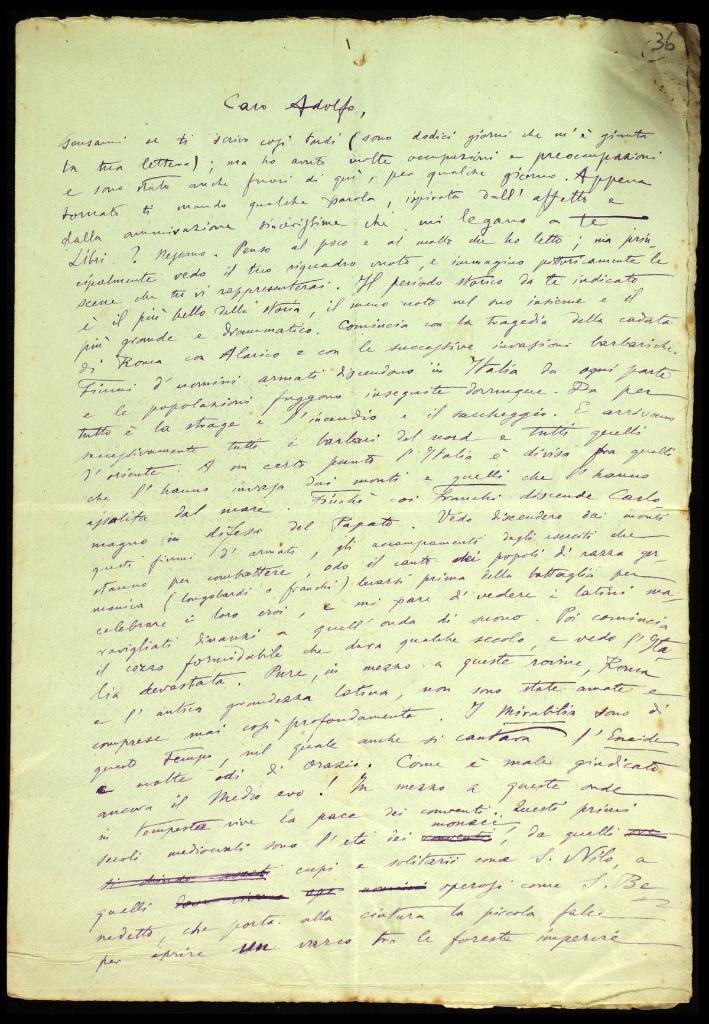 36
Caro Adolfo,
Scusami se ti scrivo così tardi (sono dodici giorni che m'è giunta
la tua lettera); ma ho avuto molte occupazioni e preoccupazioni
e sono stato anche fuori di qui, per qualche giorno. Appena
tornato ti mando qualche parola, ispirata dall'affetto e
dalla ammirazione sincerissime che mi legano a te
Libri? Nessuno. Penso al poco e al molto che ho letto; ma prin-
cipalmente vedo il tuo riquadro vuoto, e immagino pittoricamente le
scene che tu vi rappresenterai. Il periodo storico da te indicato
è il più bello della storia, il meno noto nel suo insieme e il
più grande e drammatico. Comincia con la tragedia della caduta
di Roma con Alarico e con le successive invasioni barbariche.
Fiumi d'uomini armati discendono in Italia da ogni parte
e le popolazioni fuggono inseguite dovunque. Da per
tutto è la strage e l'incendio e il saccheggio. E arrivano
successivamente tutti i barbari del nord e tutti quelli
d'oriente. A un certo punto l'Italia è divisa fra quelli
che l'hanno invasa dai monti e quelli che l'hanno
assalita dal mare. Finchè coi Franchi discende Carlo
magno in difesa del Papato. Vedo discendere dai monti
questi fiumi d'armati, gli accampamenti degli eserciti che
stanno per combattere, odo il canto dei popoli di razza ger-
manica (longobardi o franchi) levarsi prima della battaglia per
celebrare i loro eroi, e mi pare di vedere i latini ma-
ravigliati dinanzi a quell'onda di suono. Poi comincia
il cozzo formidabile che dura qualche secolo, e vedo l'Ita
lia devastata. Pure, in mezzo a queste rovine, Roma
e l'antica grandezza latina, non sono state amate e
comprese mai così profondamente. I Mirabilia sono di
questo tempo, nel quale anche si cantava l'Eneide
e molte odi di Orazio. Come è male giudicato
ancora il Medio evo! In mezzo a queste onde
in tempesta vive la pace dei conventi. Questi primi
secoli medioevali sono l'età dei monaci, da quelli
cupi e solitarii come S. Nilo, a
quelli operosi come S. Be
nedetto, che porta alla cintura la piccola falce
per aprire un varco tra le foreste impervie